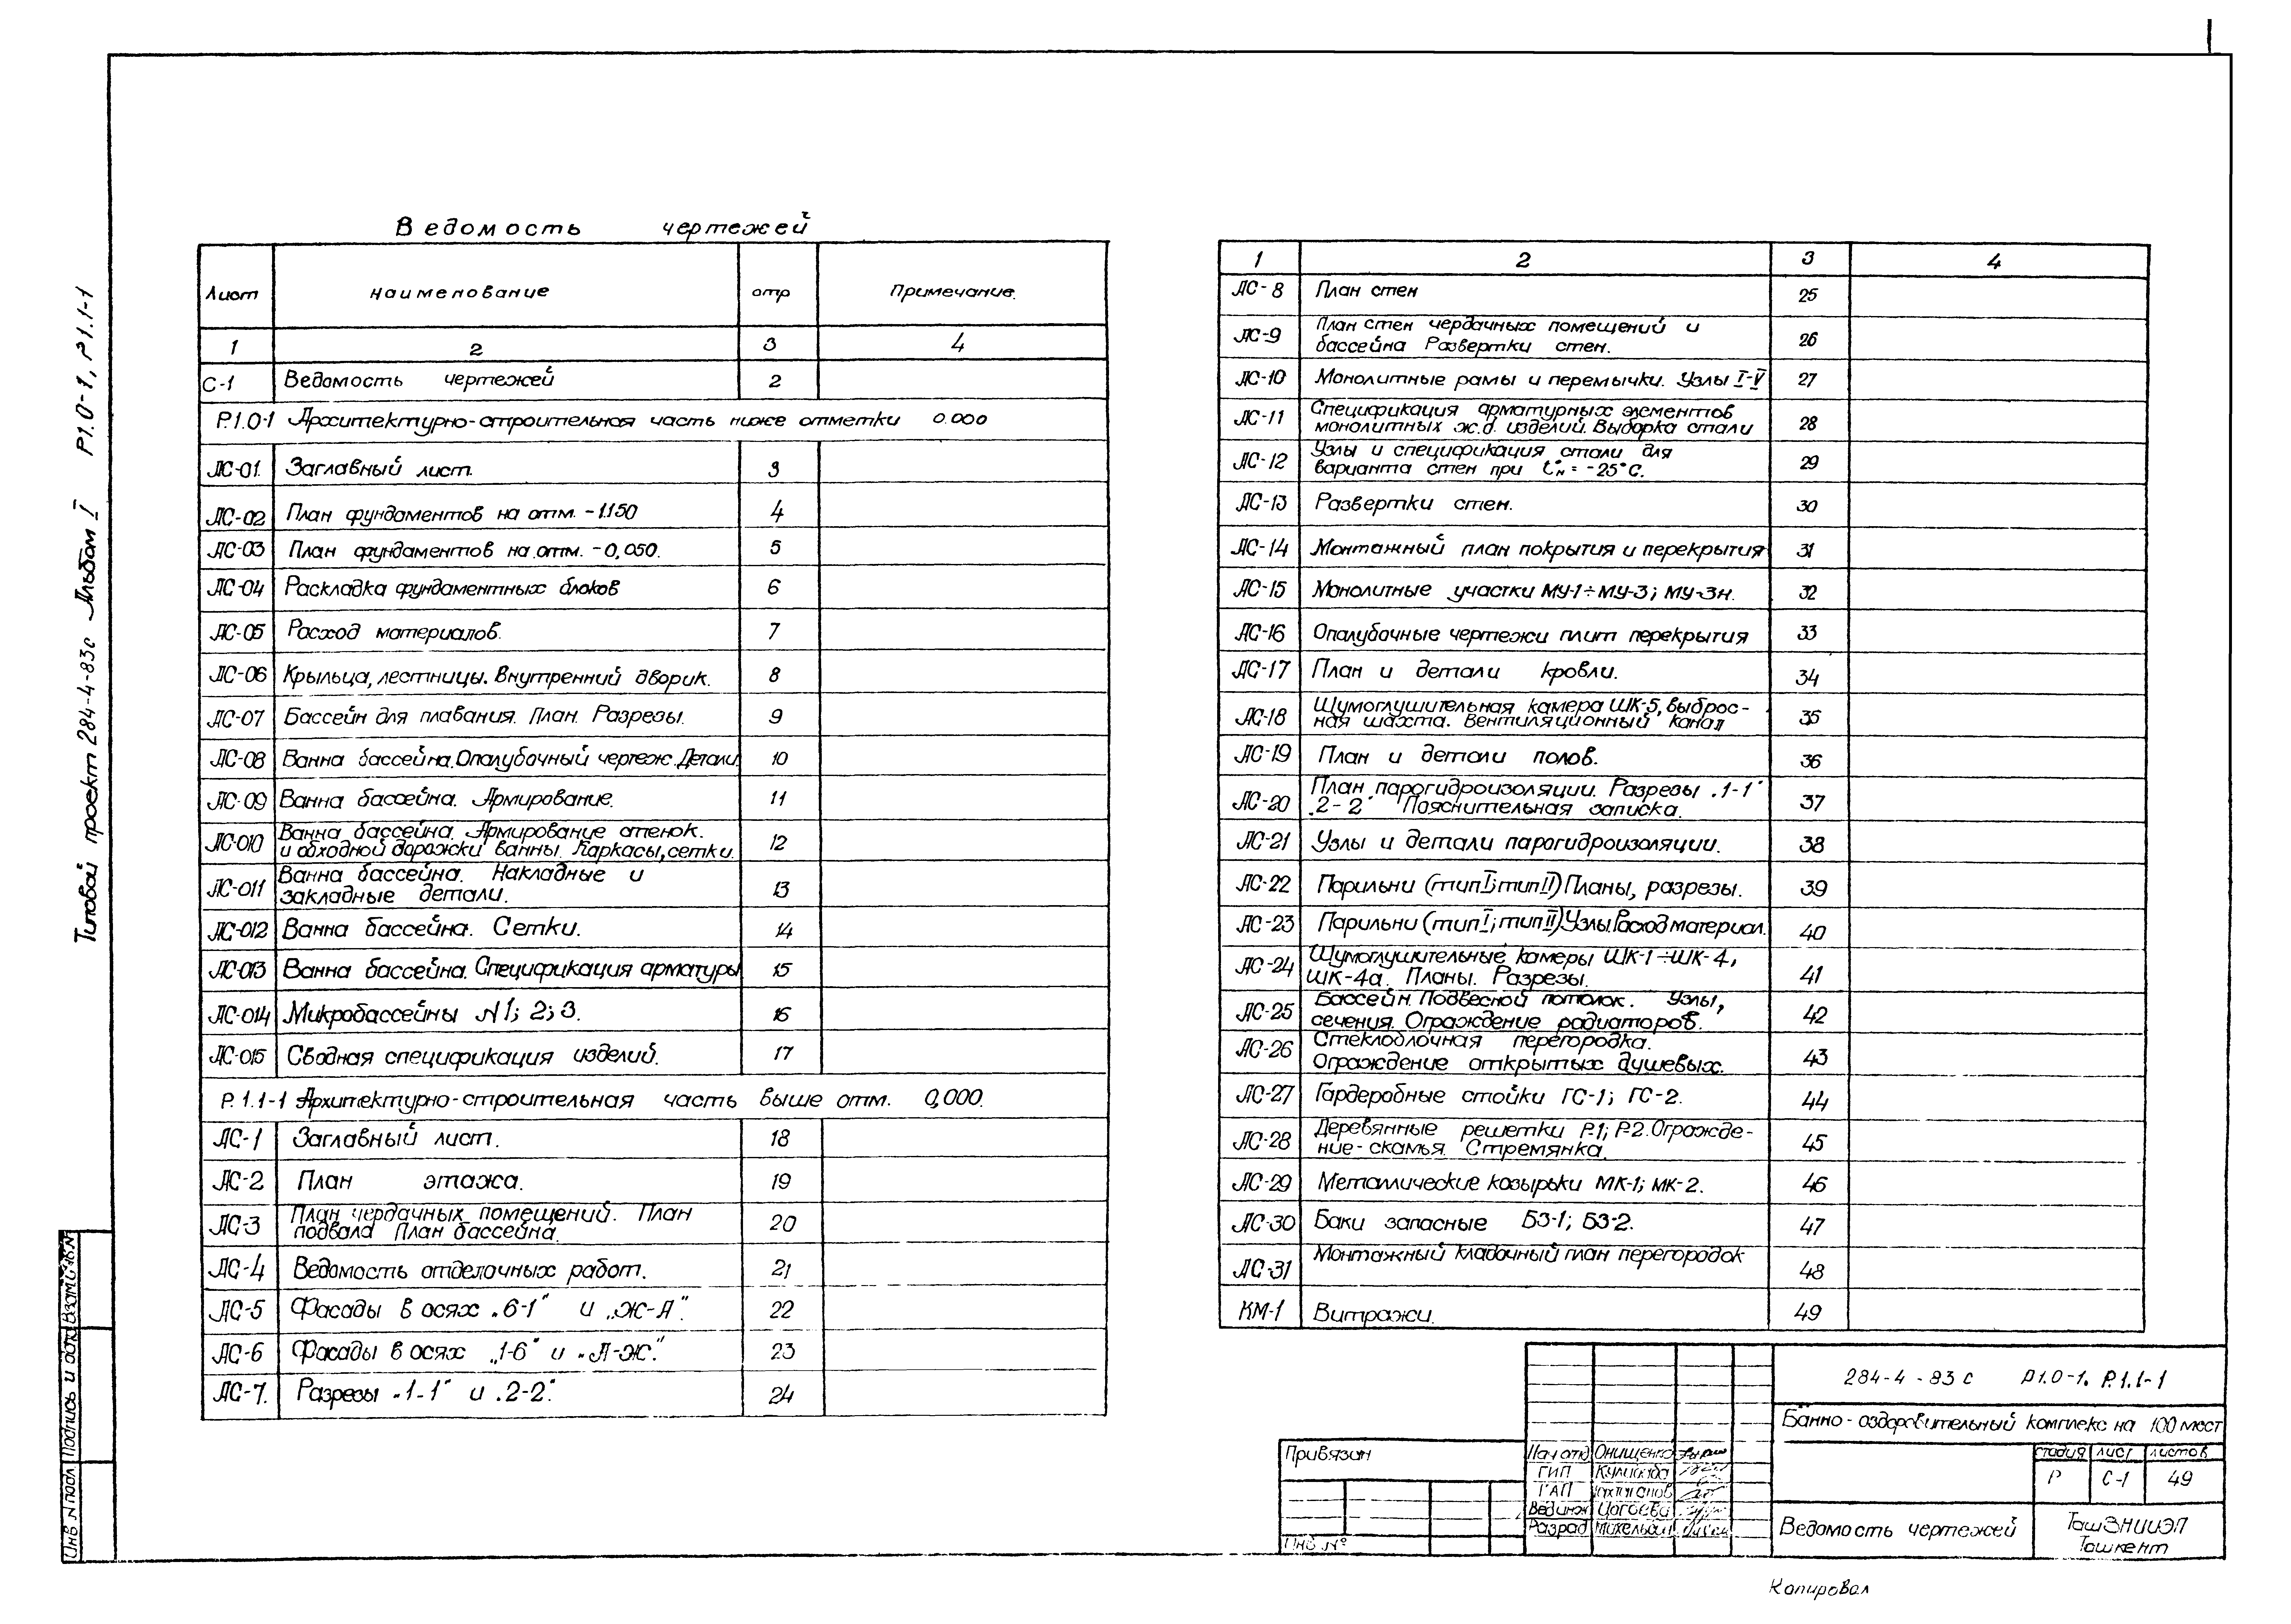 Типовой проект 284-4-83с Альбом I Р1.0-1, Р1.1-1
Ведомость чертежей
Лист наименование стр Примечание.
1 2 3 4
С-1 Ведомость чертежей 2
Р.1.0-1 Архитектурно-строительная часть ниже отметки 0.000
АС-01. Заглавный лист. 3
АС-02 План фундаментов на отм. -1.150 4
АС-03 План фундаментов на отм. -0,050. 5
АС-04 Раскладка фундаментных блоков 6
АС-05 Расход материалов. 7
АС-06 Крыльца, лестницы. Внутренний дворик. 8
АС-07 Бассейн для плавания. План. Разрезы. 9
АС-08 Ванна бассейна. Опалубочный чертеж. Детали 10
АС-09 Ванна бассейна. Армирование. 11
АС-010 Ванна бассейна. Армирование стенок.
и обходной дорожки ванны. Каркасы, сетки. 12
АС-011 Ванна бассейна. Накладные и
закладные детали. 13
АС-012 Ванна бассейна. Сетки. 14
АС-013 Ванна бассейна. Спецификация арматуры 15
АС-014 Микробассейны N1; 2; 3. 16
АС-015 Сводная спецификация изделий. 17
Р.1.1-1 Архитектурно-строительная часть выше отм. 0,000.
АС-1 Заглавный лист. 18
АС-2 План этажа. 19
АС-3 План чердачных помещений. План
подвала План бассейна. 20
АС-4 Ведомость отделочных работ. 21
АС-5 Фасады в осях „6-1" и „Ж-А". 22
АС-6 Фасады в осях „1-6" и „А-Ж." 23
АС-7. Разрезы „1-1" и „2-2". 24
1 2 3 4
АС-8 План стен 25
АС-9 План стен чердачных помещений и
бассейна Развертки стен. 26
АС-10 Монолитные рамы и перемычки. Узлы I-V 27
АС-11 Спецификация арматурных элементов
монолитных ж.д. изделий. Выборка стали 28
АС-12 Узлы и спецификация стали для
варианта стен при t°н = -25°С. 29
АС-13 Развертки стен. 30
АС-14 Монтажный план покрытия и перекрытия 31
АС-15 Монолитные участки МУ-1÷МУ-3; МУ-3н. 32
АС-16 Опалубочные чертежи плит перекрытия 33
АС-17 План и детали кровли. 34
АС-18 Шумоглушительная камера ШК-5, выброс-
ная шахта. Вентиляционный канал 35
АС-19 План и детали полов. 36
АС-20 План парогидроизоляции. Разрезы „1-1"
„2-2" Пояснительная записка. 37
АС-21 Узлы и детали парогидроизоляции. 38
АС-22 Парильни (тип I; тип II) Планы, разрезы. 39
АС-23 Парильни (тип I; тип II) Узлы. Расход материал. 40
АС-24 Шумоглушительные камеры ШК-1÷ШК-4,
ШК-4а. Планы. Разрезы. 41
АС-25 Бассейн. Подвесной потолок. Узлы,
сечения. Ограждение радиаторов. 42
АС-26 Стеклоблочная перегородка.
Ограждение открытых душевых. 43
АС-27 Гардеробные стойки ГС-1; ГС-2. 44
АС-28 Деревянные решетки Р.1; Р.2. Огражде-
ние-скамья. Стремянка. 45
АС-29 Металлические козырьки МК-1; МК-2. 46
АС-30 Баки запасные БЗ-1; БЗ-2. 47
АС-31 Монтажный кладочный план перегородок 48
КМ-1 Витражи. 49
284-4-83 с Р1.0-1. Р.1.1-1
Банно-оздоровительный комплекс на 100 мест
стадия лист листов
Р С-1 49
Ведомость чертежей
ТашЗНИИЭП
Ташкент
Привязан
Инв №
Нач отд Онищенко
ГИП
ГАП
Вед инж Цогоева
Разраб
Инв N подл Подпись и дата Взам инв N
Копировал